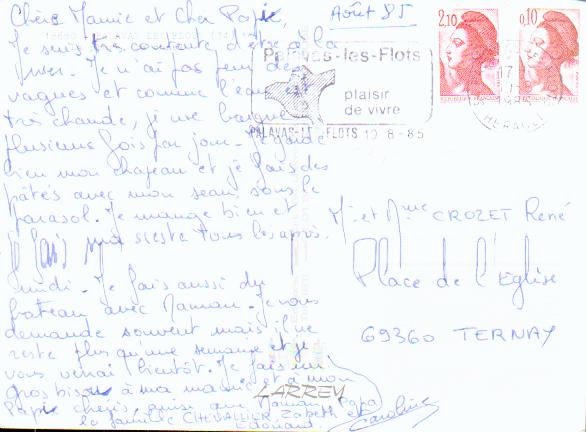 Chère Mamie et Cher Papie,
Août 85
Je suis très contente d'être à la
mer. Je n'ai pas peur des
vagues et comme l'eau est
très chaude, je me baigne
plusieurs fois par jour. Je garde
bien mon chapeau et je fais des
pâtés avec mon seau, sous le
parasol. Je mange bien et
je fais ma sieste tous les après.
midi. Je fais aussi du
bateau avec Maman. Je vous
demande souvent mais il ne
reste plus qu'une semaine et je
vous verrai bientôt. Je fais un
gros bisou à ma mamie et à mon
Papie chéris, ainsi que Maman, Papa
la famille CHEVALLIER, Zabeth et
Edouard.
Caroline
LARREY
Palavas-les-Flots
plaisir
de vivre
PALAVAS-LES-FLOTS 10-8-85
2,10
0,10
17 H
HERAULT
Mr et Mme CROZET René
Place de l'Eglise
69360 TERNAY